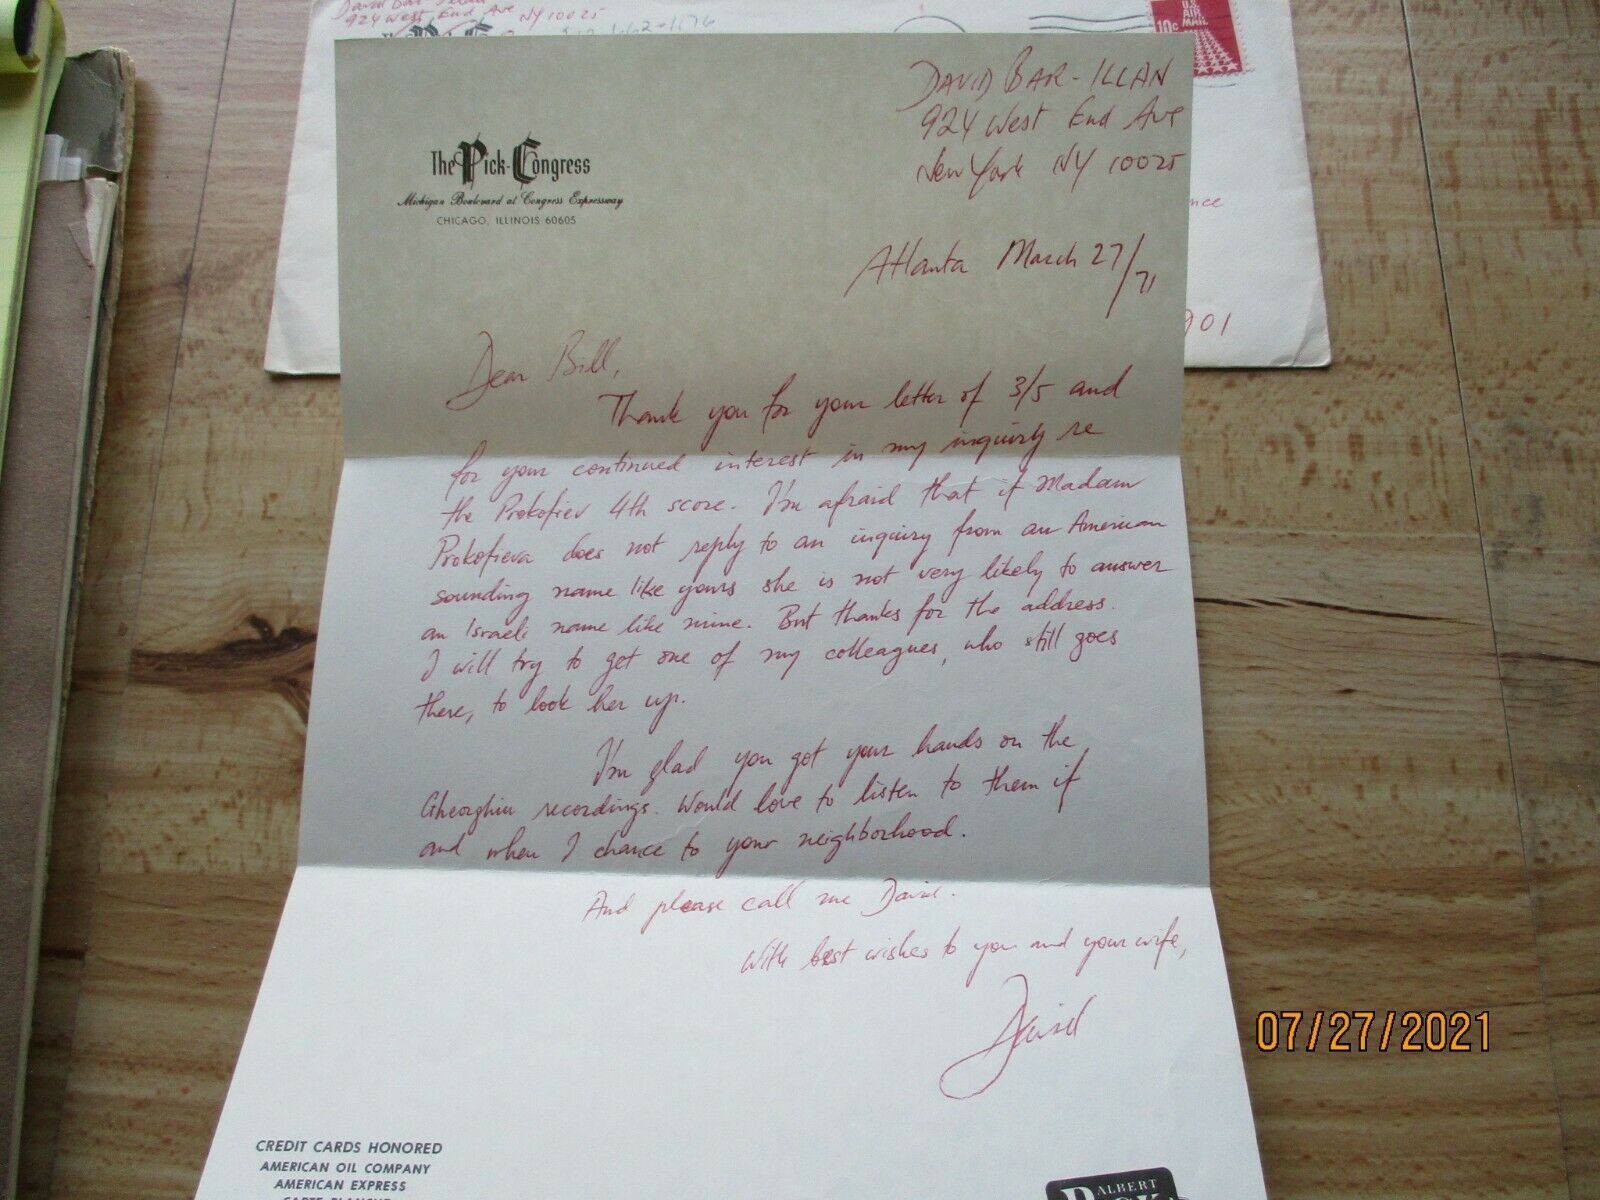 924 West End Ave NY 10025
U.S. AIR MAIL
10c
DAVID BAR-ILLAN
924 West End Ave
New York NY 10025
The Pick-Congress
Michigan Boulevard at Congress Expressway
CHICAGO, ILLINOIS 60605
Atlanta March 27/71
Dear Bill,
Thank you for your letter of 3/5 and
for your continued interest in my inquiry re
the Prokofiev 4th score. I'm afraid that if Madam
Prokofieva does not reply to an inquiry from an American
sounding name like yours she is not very likely to answer
an Israeli name like mine. But thanks for the address.
I will try to get one of my colleagues, who still goes
there, to look her up.
I'm glad you got your hands on the
Gheorghiu recordings. Would love to listen to them if
and when I chance to your neighborhood.
And please call me David.
With best wishes to you and your wife,
David
07/27/2021
CREDIT CARDS HONORED
AMERICAN OIL COMPANY
AMERICAN EXPRESS
ALBERT